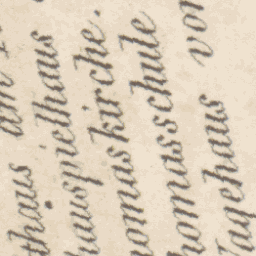 thaus am
hauspielhaus
omaskirche.
homasschule
Wagehaus vor